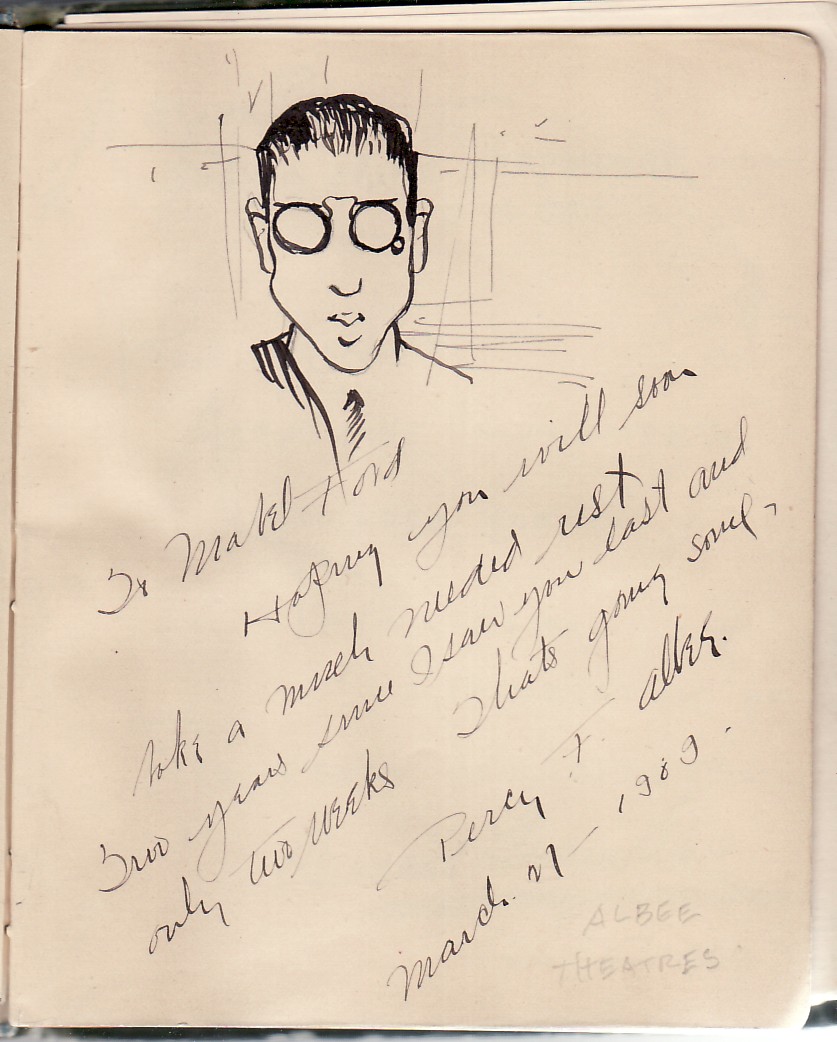 To Mabel Ford
Hoping you will soon
take a much needed rest
Two years since I saw you last and
only two weeks Thats going some,
Percy F. Albee.
March. 27 - 1909.
ALBEE
THEATRES